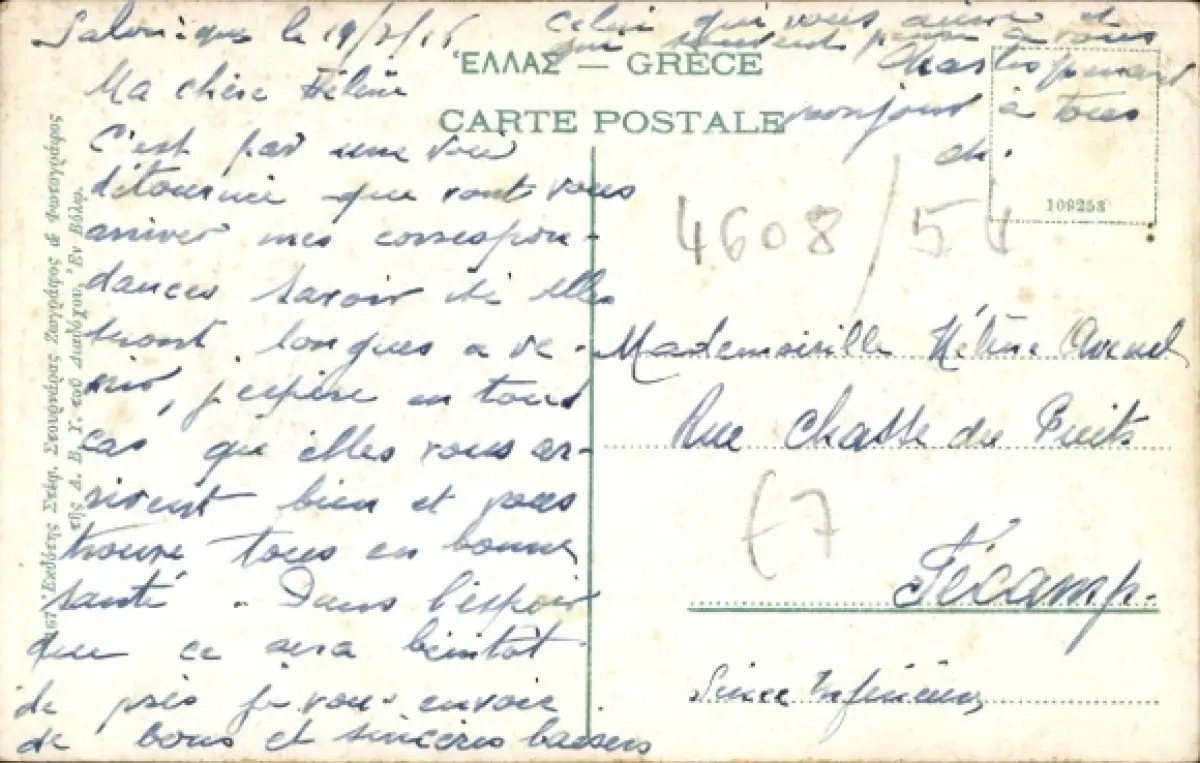 Salonique le 19/7/16
Ma chère Hélène
C'est par une voie
détournée que vont vous
arriver mes correspon-
dances savoir si elles
seront longues a ve-
nir, j'espère en tout
cas qu'elles vous ar-
rivent bien et vous
trouve tous en bonne
santé. Dans l'espoir
que ce sera bientot
de près je vous envoie
de bons et sincères baisers
Celui qui vous aime et
qui souvent pense à vous
bonjour à tous
ch.
ΈΛΛΑΣ — GRÈCE
CARTE POSTALE
109253
4608/54
Mademoiselle Hélène Avenel
Rue Chasse du Puits
67
Fécamp.
Seine Inférieure
Ἐκδότης Στέφ. Στουρνάρας Ζωγράφος & Φωτογράφος
τῆς Α. Β. Υ. τοῦ Διαδόχου, Ἐν Βόλῳ.